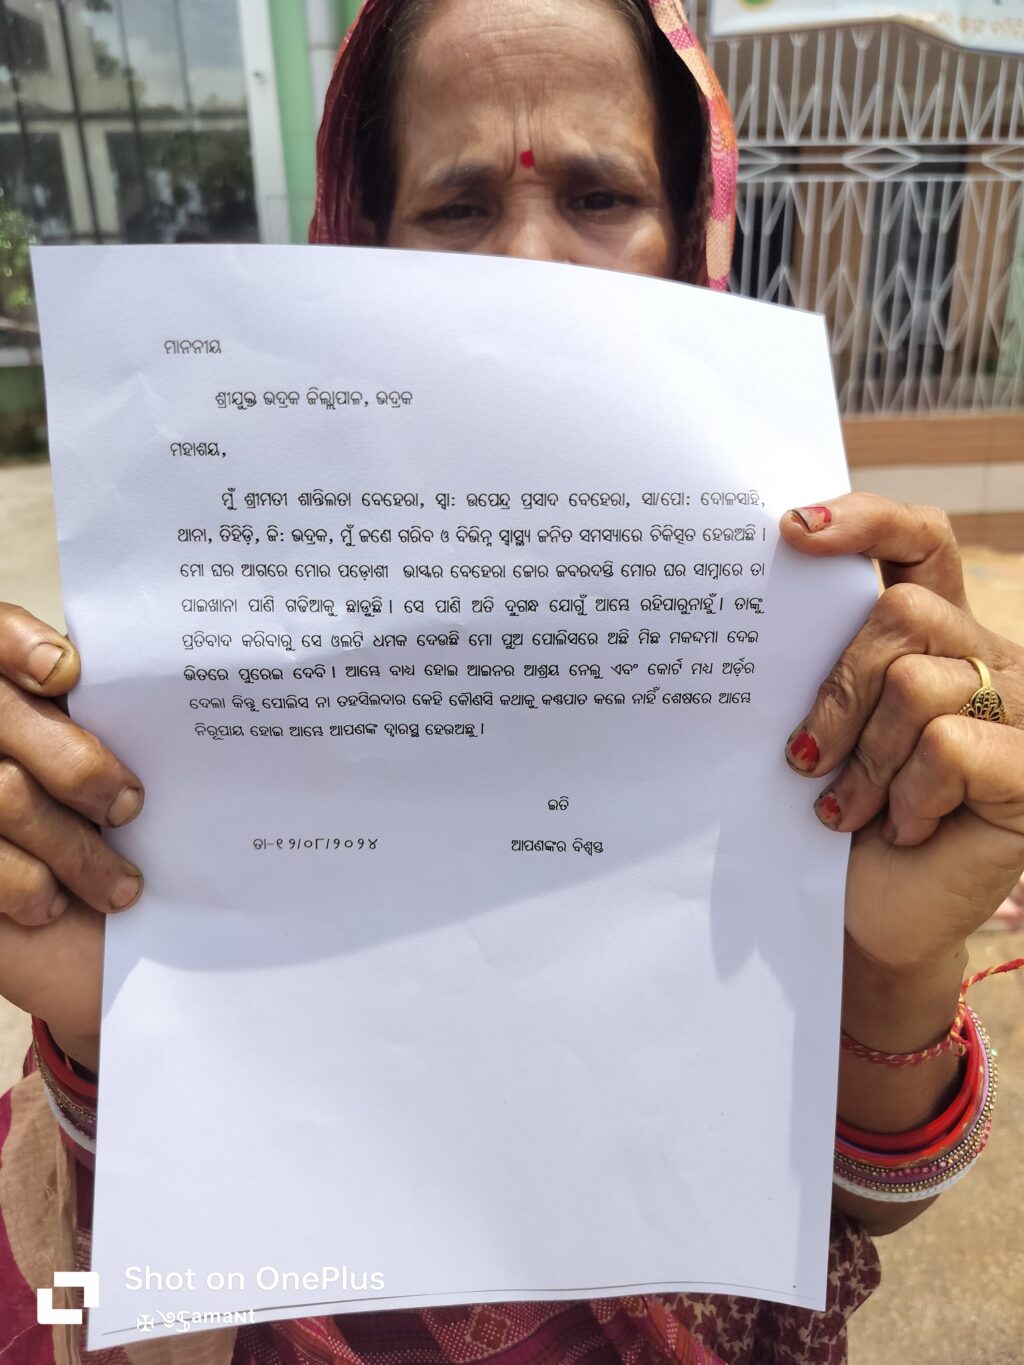 ମାନନୀୟ
ଶ୍ରୀଯୁକ୍ତ ଭଦ୍ରକ ଜିଲ୍ଲାପାଳ, ଭଦ୍ରକ
ମହାଶୟ,
ମୁଁ ଶ୍ରୀମତୀ ଶାନ୍ତିଲତା ବେହେରା, ସ୍ବା: ଉପେନ୍ଦ୍ର ପ୍ରସାଦ ବେହେରା, ସା/ପୋ: ଦୋଳସାହି,
ଥାନା, ତିହିଡ଼ି, ଜି: ଭଦ୍ରକ, ମୁଁ ଜଣେ ଗରିବ ଓ ବିଭିନ୍ନ ସ୍ୱାସ୍ଥ୍ୟ ଜନିତ ସମସ୍ୟାରେ ଚିକିତ୍ସିତ ହେଉଅଛି ।
ମୋ ଘର ଆଗରେ ମୋର ପଡ଼ୋଶୀ ଭାସ୍କର ବେହେରା ଜୋର ଜବରଦସ୍ତି ମୋର ଘର ସାମ୍ନାରେ ତା
ପାଇଖାନା ପାଣି ଗଡିଆକୁ ଛାଡ଼ୁଛି । ସେ ପାଣି ଅତି ଦୁଗନ୍ଧ ଯୋଗୁଁ ଆମ୍ଭେ ରହିପାରୁନାହୁଁ । ତାଙ୍କୁ
ପ୍ରତିବାଦ କରିବାରୁ ସେ ଓଲଟି ଧମକ ଦେଉଛି ମୋ ପୁଅ ପୋଲିସରେ ଅଛି ମିଛ ମକଦ୍ଦମା ଦେଇ
ଭିତରେ ପୁରେଇ ଦେବି । ଆମ୍ଭେ ବାଧ୍ୟ ହୋଇ ଆଇନର ଆଶ୍ରୟ ନେଲୁ ଏବଂ କୋର୍ଟ ମଧ୍ୟ ଅର୍ଡ଼ର
ଦେଲା କିନ୍ତୁ ପୋଲିସ ନା ତହସିଲଦାର କେହି କୌଣସି କଥାକୁ କଣ୍ଣପାତ କଲେ ନାହିଁ ଶେଷରେ ଆମ୍ଭେ
ନିରୂପାୟ ହୋଇ ଆମ୍ଭେ ଆପଣଙ୍କ ଦ୍ୱାରସ୍ଥ ହେଉଅଛୁ ।
ଇତି
ତା-୧୨/୦୮/୨୦୨୪ ଆପଣଙ୍କର ବିଶ୍ୱସ୍ତ
Shot on OnePlus